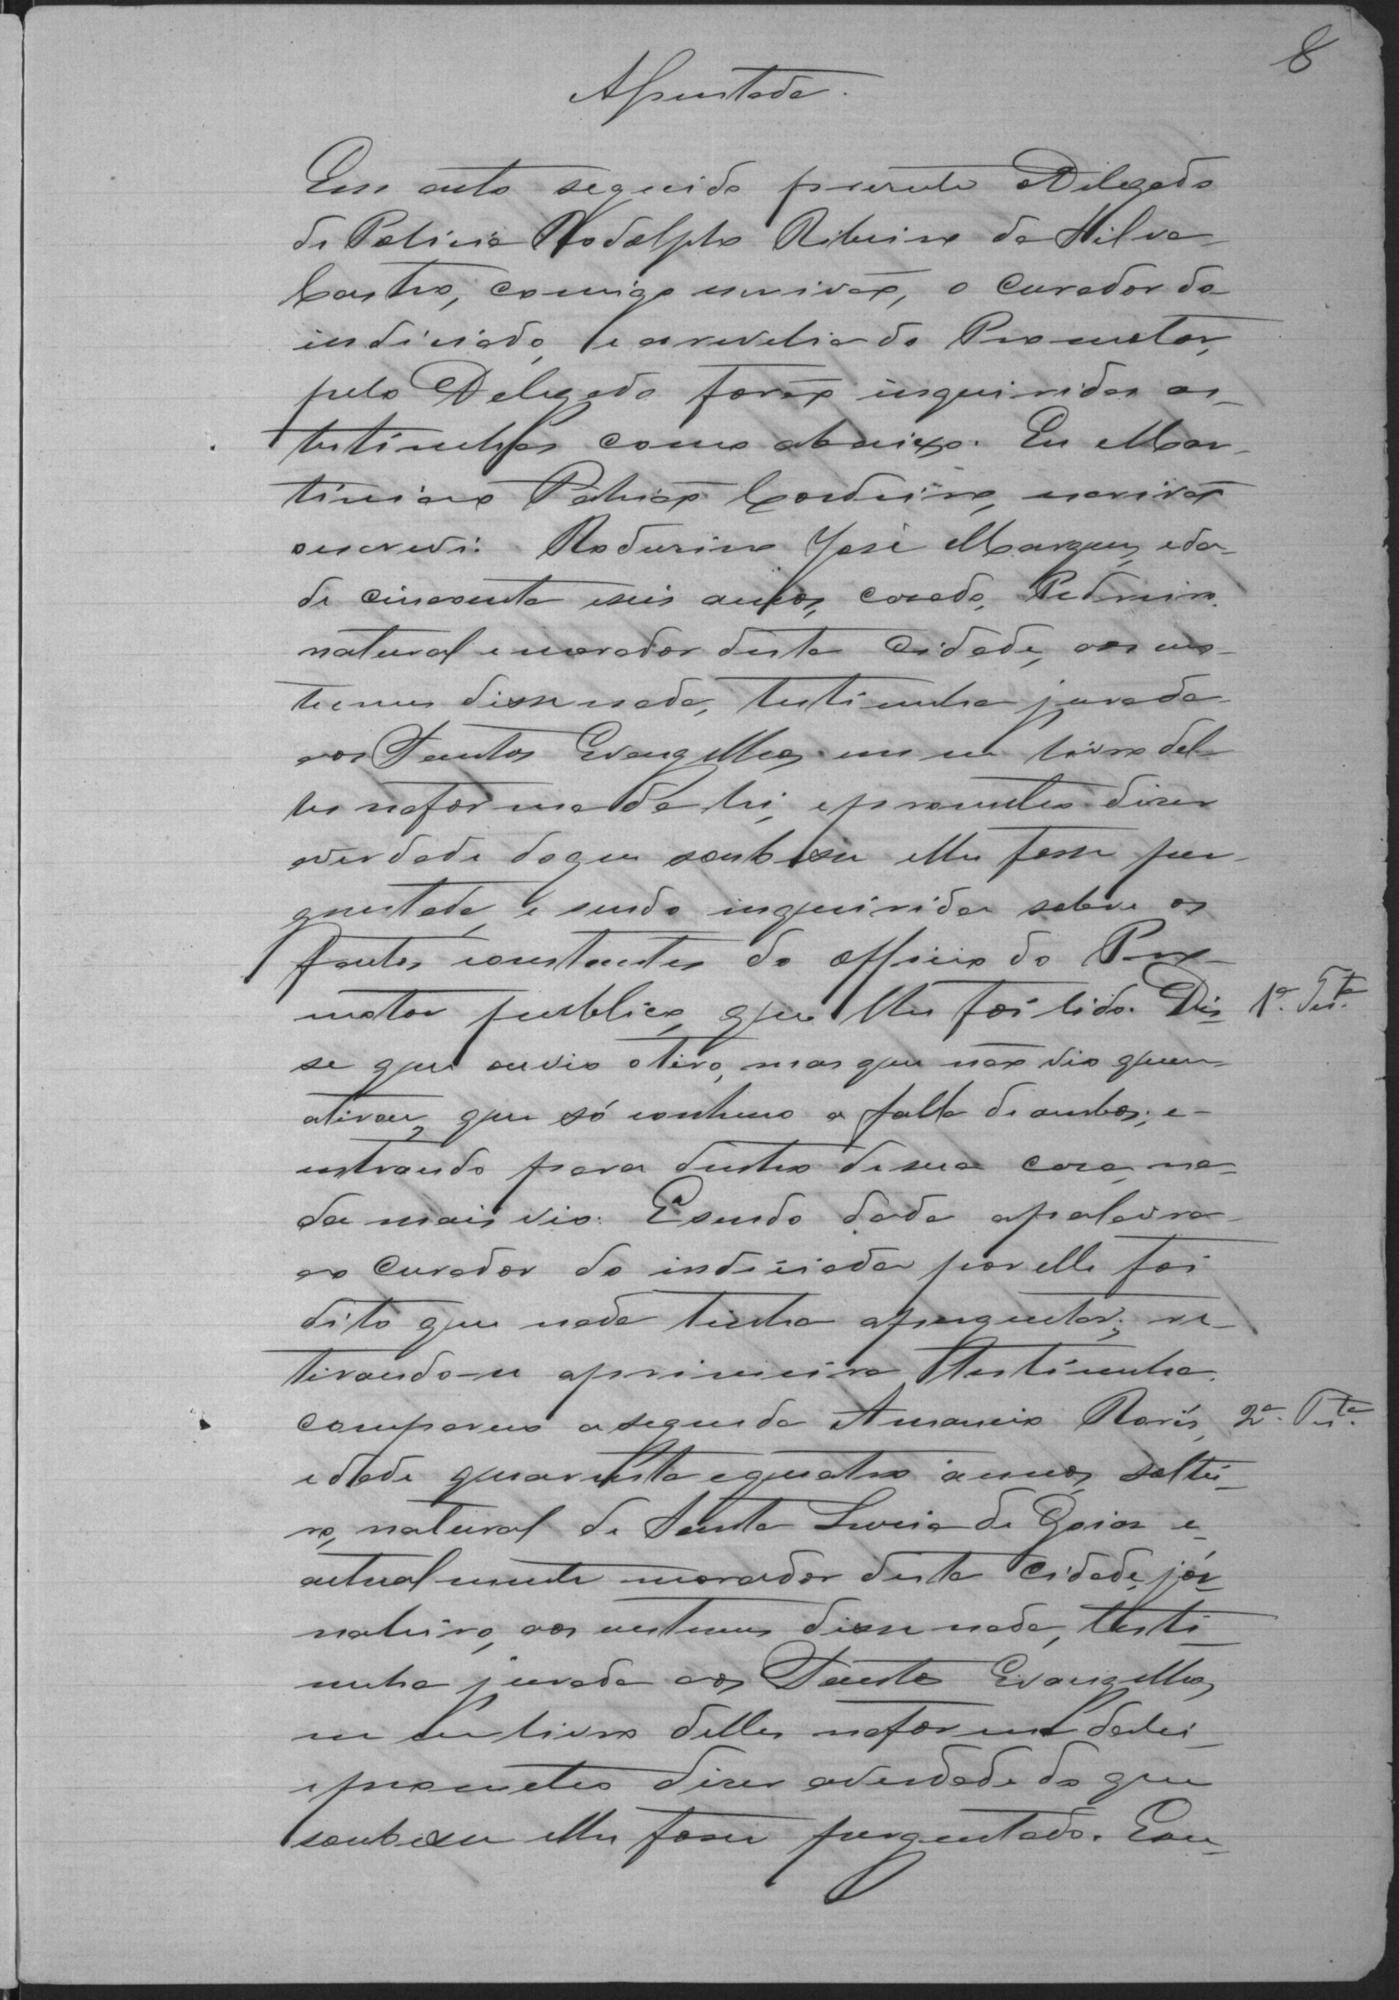 8
Assentada.
Em acto seguido presente o Delegado
de Policia Rodolpho Ribeiro da Silva
Castro, comigo escrivão, o curador do
indiciado, e a revelia do Promotor,
pelo Delegado forão inqueridas as
testimunhas como abaixo. Eu Mar-
tiniano Patricio Cordeiro, escrivão
oescrevi. José Marques, eda-
de cincoenta e seis annos, casado, Pedreiro,
natural e morador desta Cidade, aos cos-
tumes disse nada, testimunha jurada
aos Santos Evangelhos em um livro del-
les na forma da lei, e prometteo diser
a verdade do que soubesse e lhe fosse per-
guntado, e sendo inquirida sobre os
factos constantes do officio do Pro-
motor publico, que lhe foi lido. Dis- 1ª. Test.ª
se que ouvio o tiro, mas que não vio quem
atirou, que só conheceo a falla de ambos; e
entrando para dentro de sua casa, na-
da mais vio. E sendo dada a palavra
ao Curador do indiciado por elle foi
dito que nada tinha a perguntar; re-
tirando-se a primeira testimunha.
compareceo a segunda Amancio 2ª. Test.ª
edade quarenta e quatro annos, soltei-
ro, natural de Santa Luzia de Goias e
actualmente morador desta Cidade, jor-
naleiro, aos custumes disse nada, testi-
munha jurada aos Santos Evangelhos
em um livro delles na forma da lei
e prometteo diser a verdade do que
soubesse e lhe fosse perguntado. E sen-